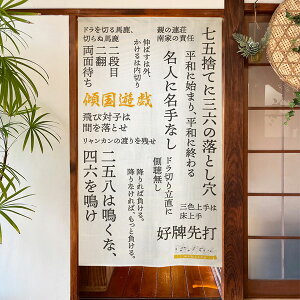 七五捨てに三六の落とし穴
平和に始まり、平和に終わる
名人に名手なし
ドラ切り立直に
側聴無し
三色上手は
床上手
好牌先打
親の連荘
南家の責任
伸ばすは外、
かけるは内切り
ドラを切る馬鹿、
切らぬ馬鹿
二段目
二翻
両面待ち
傾国遊戯
飛び対子は
間を落とせ
リャンカンの渡りを残せ
降りれば負ける。
降りなければ、もっと負ける。
二五八は鳴くな、
四六を鳴け